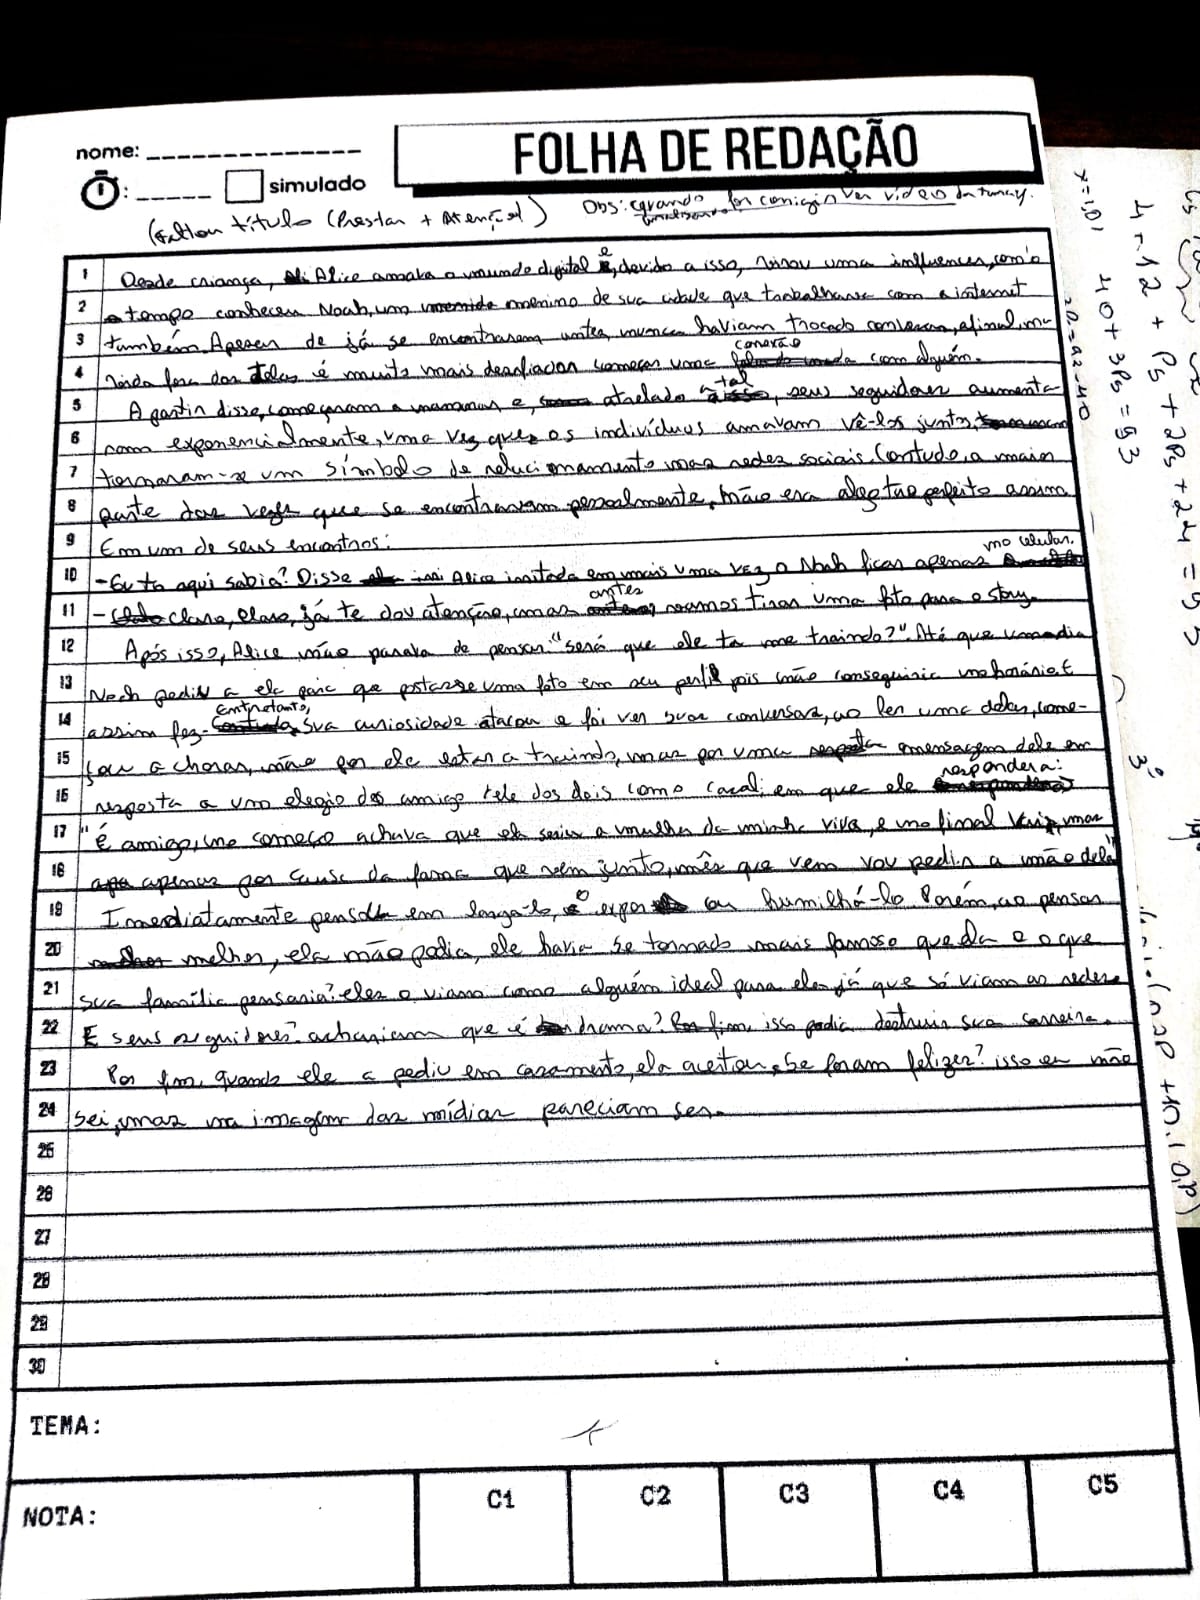 nome:
FOLHA DE REDAÇÃO
simulado
(Faltou título (Prestar + Atenção)
Obs: quando for corrigir ver vídeo da
1 Desde criança, Alice amava o mundo digital e, devido a isso, virou uma influencer, com o
2 tempo conheceu Noah, um menino de sua cidade que trabalhava com a internet
3 também. Apesar de já se encontrarem antes, nunca haviam trocado conversas, afinal, na
4 vida fora das telas é muito mais desafiador começar uma conexão com alguém.
5 A partir disso, começaram a namorar e, atrelado a tal, seus seguidores aumenta-
6 ram exponencialmente, uma vez que os indivíduos amavam vê-los juntos,
7 tornaram-se um símbolo de relacionamento nas redes sociais. Contudo, a maior
8 parte das vezes que se encontravam pessoalmente, não era algo tão perfeito assim.
9 Em um de seus encontros:
10 - Eu to aqui sabia? Disse Alice irritada em mais uma vez o Noah ficar apenas no celular.
11 - claro, claro, já te dou atenção, mas antes vamos tirar uma foto para o story.
12 Após isso, Alice não parava de pensar "será que ele ta me traindo?". Até que um dia
13 Noah pediu a ela para que postasse uma foto em seu perfil pois não conseguiria no horário. E
14 assim fez. Entretanto, sua curiosidade atacou e foi ver suas conversas, ao ler uma delas, come-
15 çou a chorar, não por ele estar a traindo, mas por uma mensagem dele em
16 resposta a um elogio do amigo dele dos dois como casal; em que ele respondera:
17 "é amigo, no começo achava que ela seria a mulher da minha viva, e no final mas
18 apenas por causa da fama que vem junto, mês que vem vou pedir a mão dela"
19 Imediatamente pensou em largá-lo, expor ou humilhá-lo. Porém, ao pensar
20 melhor, ela não podia, ele havia se tornado mais famoso que ela e o que
21 sua família pensaria? eles o viam como alguém ideal para ela já que só viam as redes.
22 E seus seguidores? achariam que é drama? isso podia destruir sua carreira.
23 Por fim, quando ele a pediu em casamento, ela aceitou. Se foram felizes? isso eu não
24 sei, mas na imagem das mídias pareciam ser.
25
26
27
28
29
30
TEMA:
NOTA:
C1 C2 C3 C4 C5
x=1,01
40 + 3Ps = 53
4 + 12 + Ps + 2Ps + 24 = 53
3º